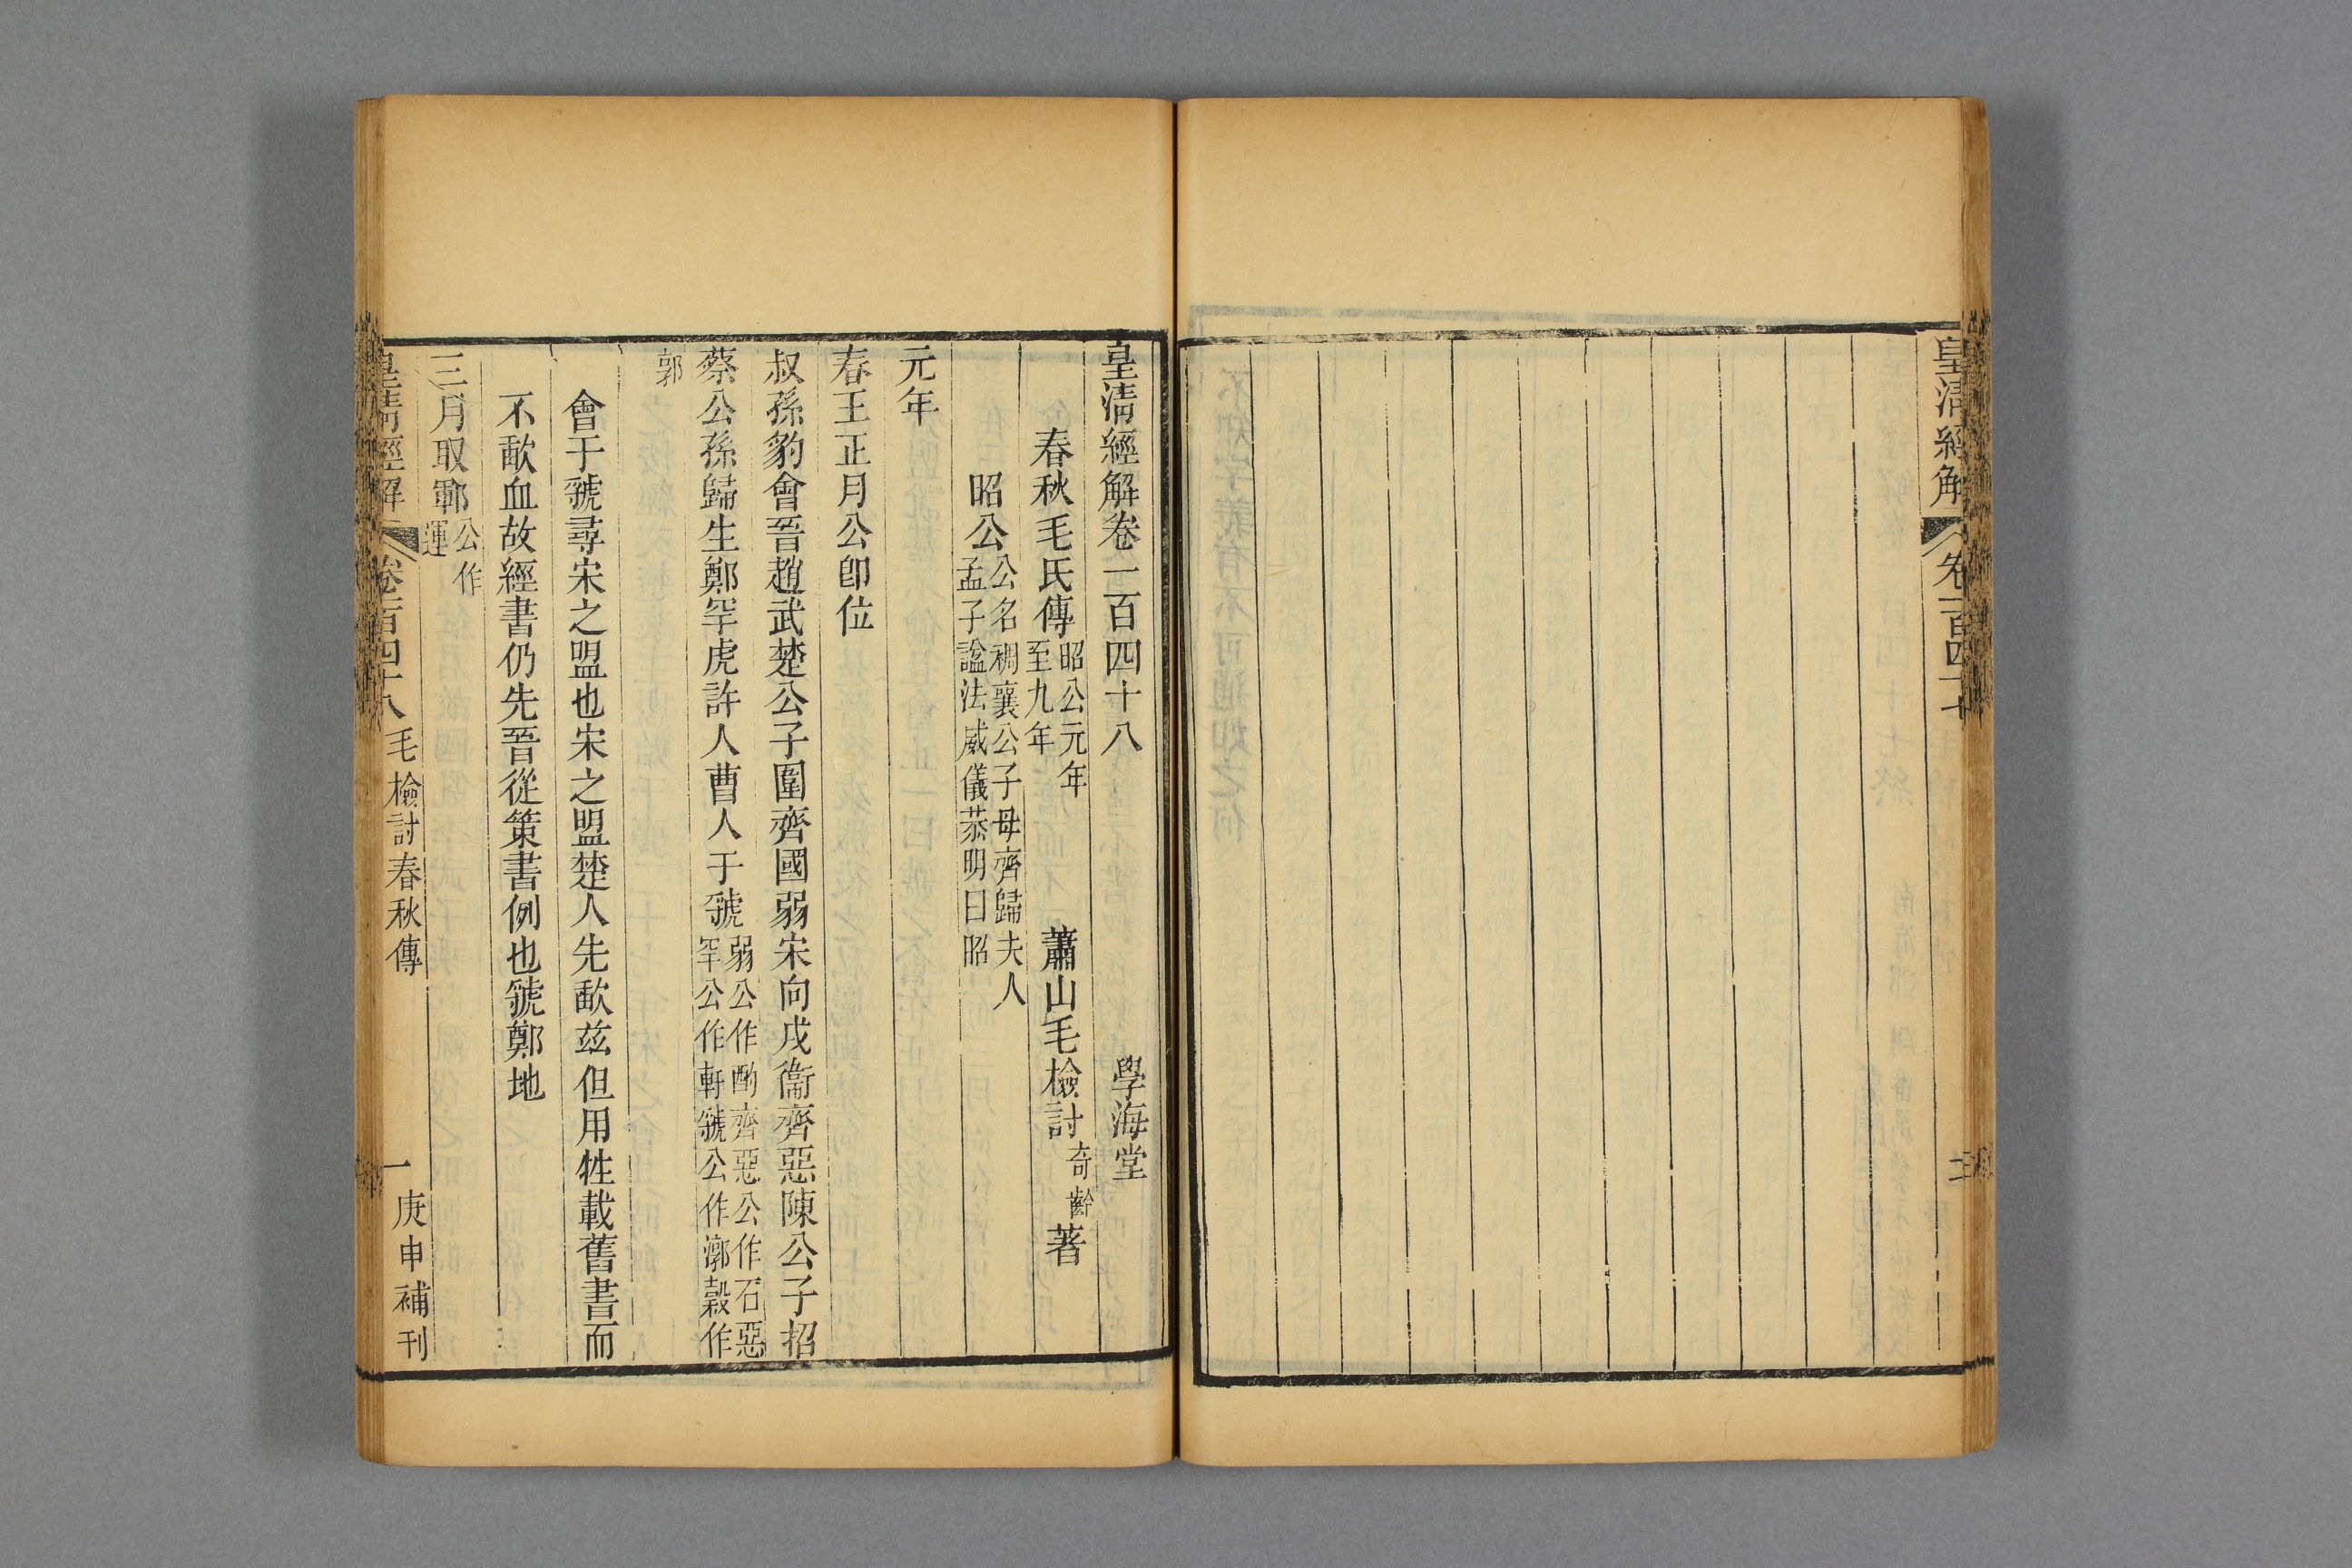 皇清經解
皇清經解卷一百四十八 學海堂
春秋毛氏傳 昭公元年至九年 蕭山毛檢討奇齡著
昭公 公名稠襄公子母齊歸夫人孟子諡法威儀恭明曰昭
元年
春王正月公卽位
叔孫豹會晉趙武楚公子圍齊國弱宋向戌衞齊惡陳公子招
蔡公孫歸生鄭罕虎許人曹人于虢 弱公作酌齊惡公作石惡罕公作軒虢公作漷穀作
郭
會于虢尋宋之盟也宋之盟楚人先歃兹但用牲載舊書而
不歃血故經書仍先晉從策書例也虢鄭地
三月取鄆 公作運
皇淸經解 卷一百四十八 毛檢討春秋傳 一 庚申補刊